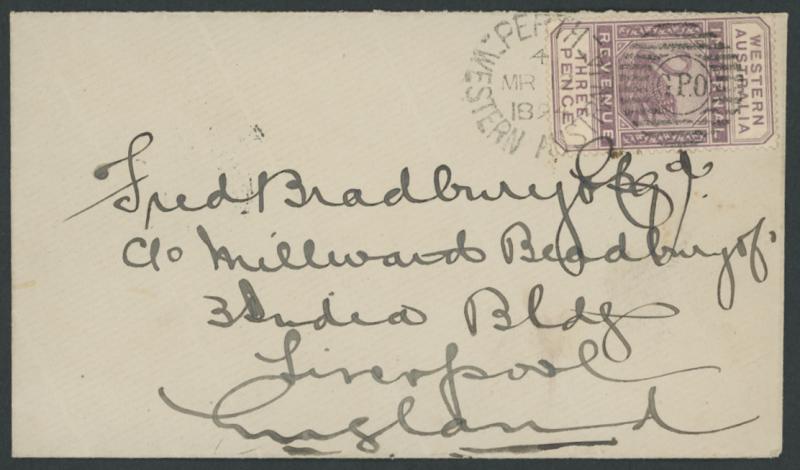 PERTH
4
MR
189
WESTERN AUS
WESTERN AUSTRALIA
INTERNAL REVENUE
THREE PENCE
G.P.O
Fred Bradbury Esqr
C/o Millward Bradbury
3 India Bldg
Liverpool
England